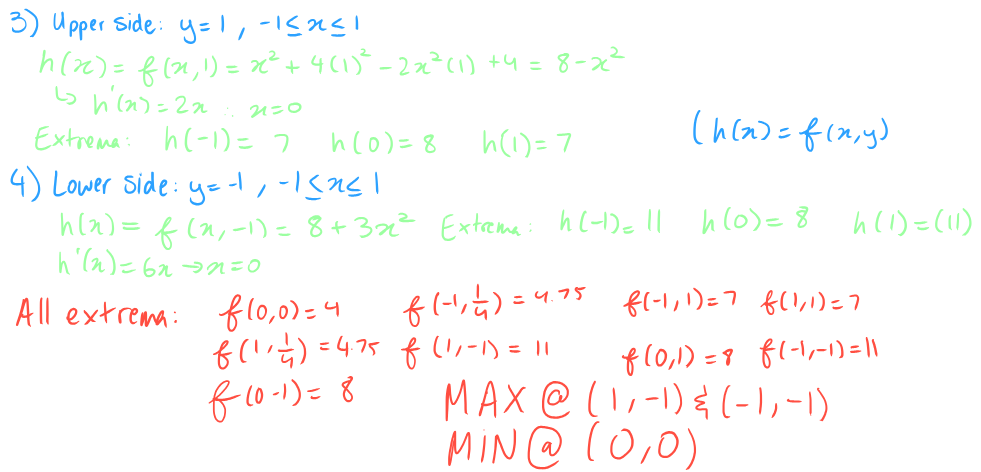 3) Upper side: y=1, -1≤x≤1
h(x) = f(x,1) = x² + 4(1)² - 2x²(1) + 4 = 8 - x²
↳ h'(x) = 2x ∴ x=0
Extrema: h(-1) = 7 h(0) = 8 h(1) = 7
(h(x) = f(x,y)
4) Lower side: y=-1, -1≤x≤1
h(x) = f(x,-1) = 8 + 3x² Extrema: h(-1) = 11 h(0) = 8 h(1) = (11)
h'(x) = 6x → x=0
All extrema: f(0,0) = 4 f(-1,1/4) = 4.75 f(-1,1) = 7 f(1,1) = 7
f(1,1/4) = 4.75 f(1,-1) = 11 f(0,1) = 8 f(-1,-1) = 11
f(0-1) = 8
MAX @ (1,-1) & (-1,-1)
MIN @ (0,0)